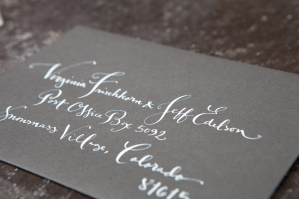 Virginia Frischkorn & Jeff Edelson
Post Office Box 5092
Snowmass Village, Colorado
81615